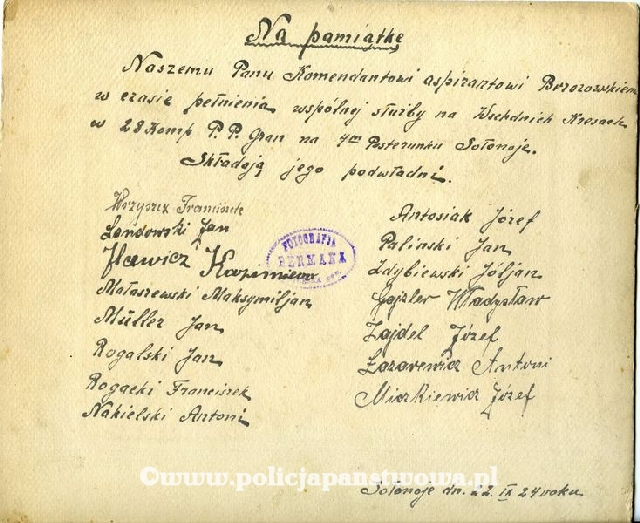 Na pamiątkę
Naszemu Panu Komendantowi aspirantowi Brzozowskiem
w czasie pełnienia wspólnej służby na Wschdnich Kresach
w 28 Komp P. P. Gran na 4m Posterunku Sołonoje.
Składają jego podwładni.
Franciszek
Landowski Jan
Iławicz
Małaszewski Maksymiljan
Müller Jan
Rogalski Jan
Rogacki Franciszek
Nakielski Antoni
FOTOGRAFJA
BERMANA
Antosiak Józef
Paliński Jan
Zdybiewski
Władysław
Zajdel Józef
Łazarewicz Antoni
Miaśkiewicz Józef
©www.policjapanstwowa.pl
Sołonoje dn. 22 IX 24 roku